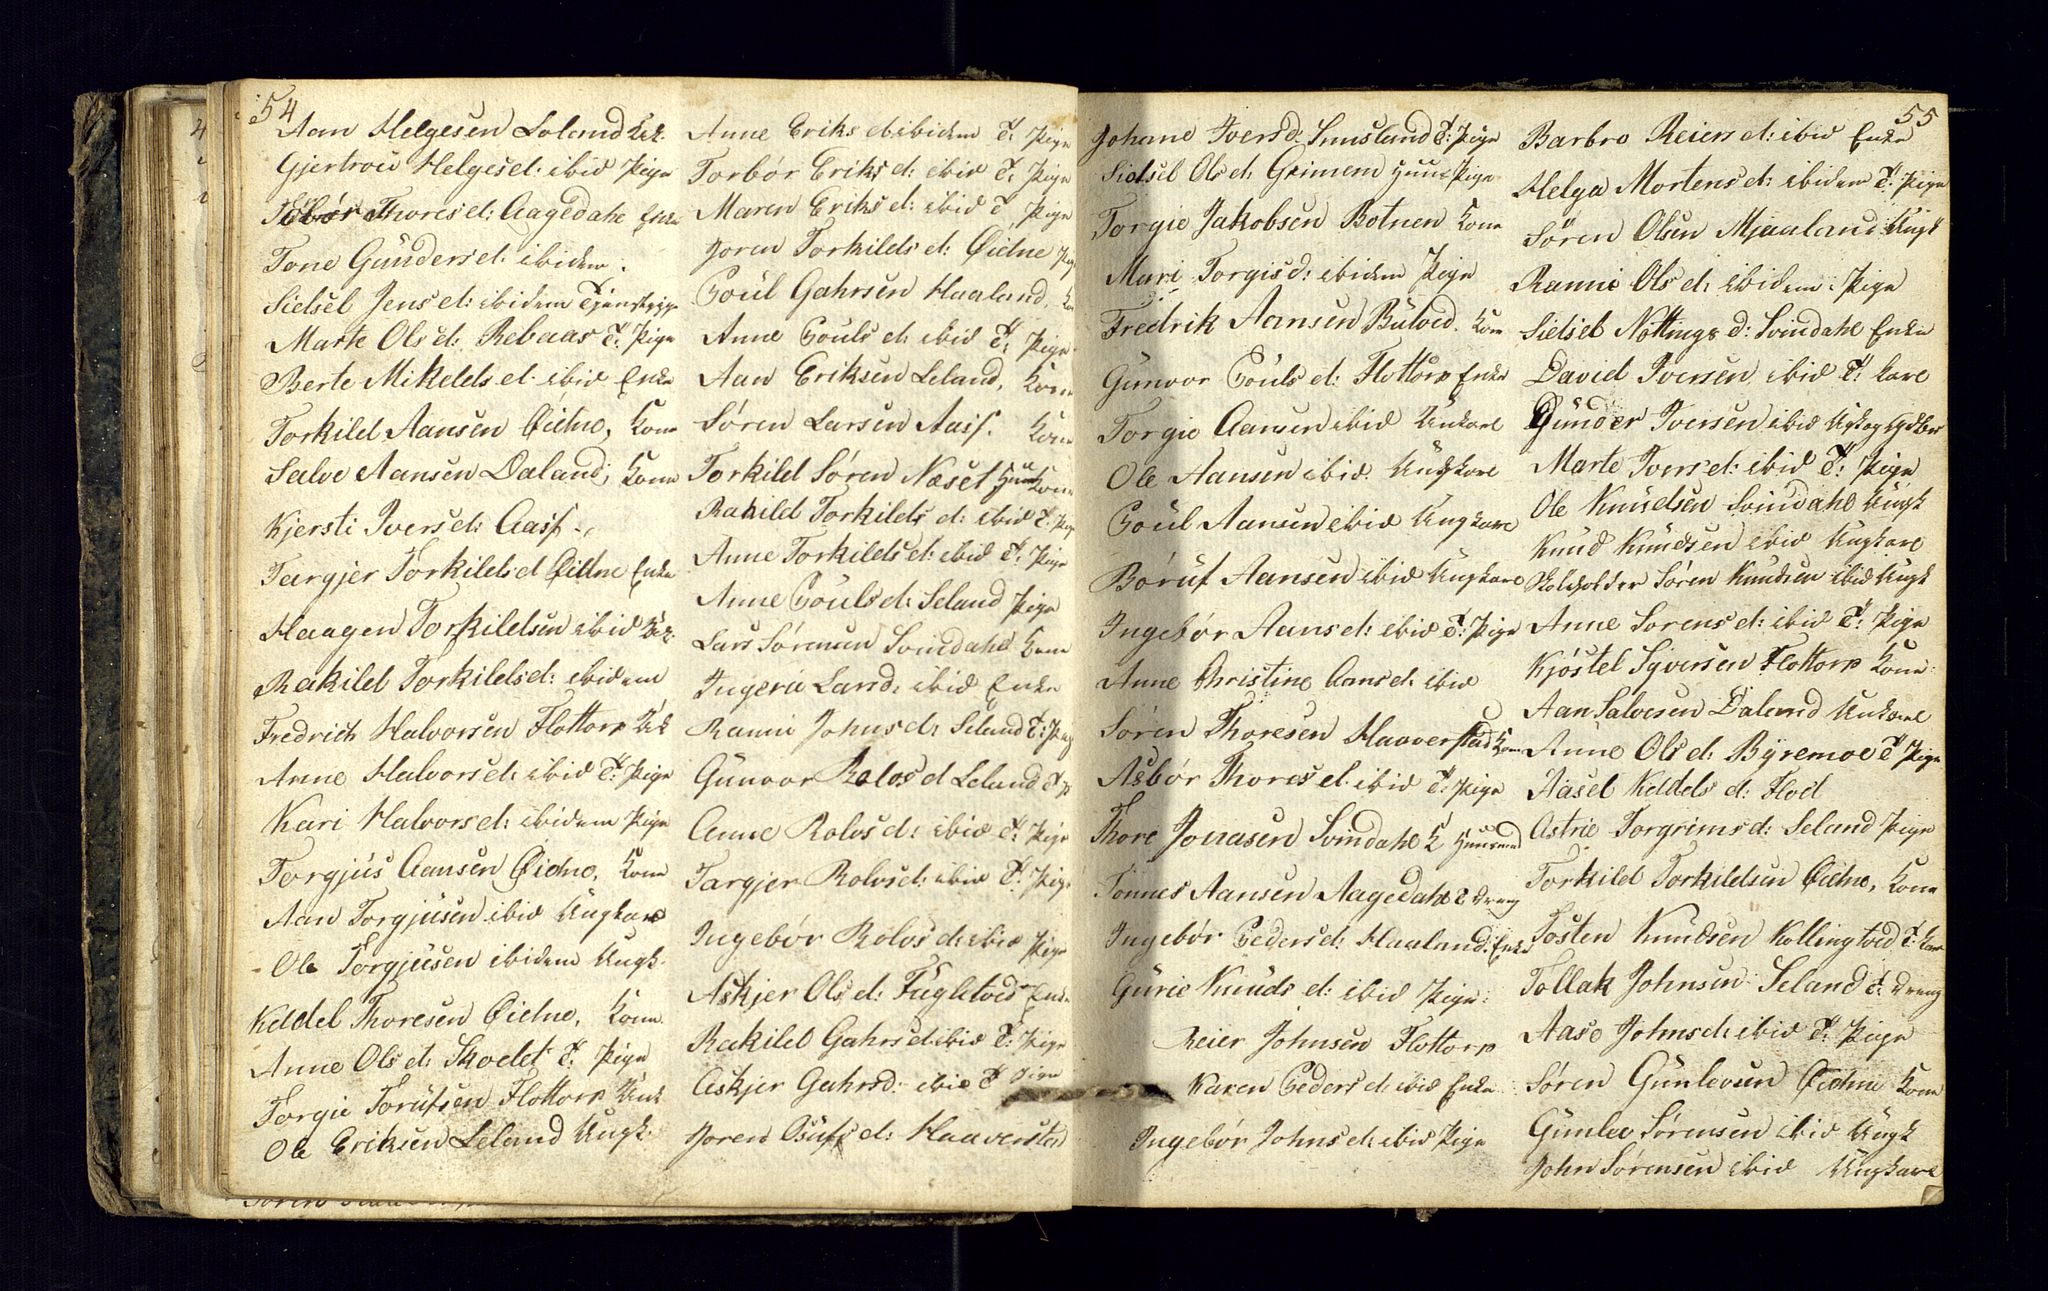 54
Aan Helgesen Loland UK.
Gjertroü Helgesd: ibid Pige
Thoresd: Aagedahl Enke
Tone Günders d: ibidem.
Sidsel Jens d: ibidem Tjenstpige
Marte Ols d: Rebaas T: Pige
Berte Mikelds d: ibid Enke
Torkild Aansen Øidne, Kone
Salve Aansen Daland, Kone
Kjersti Ivers d: Aass
Targjer Torkilds d Øidne Enke
Haagen Torkildsen ibid UK:
Rakild Torkildsd: ibidem
Fredrich Halvorsen Flottorp UK
Anne Halvors d: ibid T: Pige
Kari Halvors d: ibidem Pige
Torgjüs Aansen Øidne, Kone
Aan Torgjüsen ibid Ungkare
Ole Torgjüsen ibidem Ungk.
Keddel Thoresen Øidne, Kone.
Anne Ols d: Skoelet T: Pige
Torgie Torüfsen Flottorp Unk
Ole Eriksen Leland Ungk:
Anne Eriks d: ibidem T: Pige
Torbør Eriks d: ibid T: Pige
Maren Eriks d: ibid T Pige
Joren Torkilds d: Øidne Pig
Poül Gahrsen Haaland, Ko
Anne Pouls d: ibid T: Pige
Aan Eriksen Leland, Kone
Søren Larsen Aass. Kone
Torkild Søren Næset Huus Kone
Rakild Torkilds d: ibid T: Pige
Anne Torkildsd: ibid T: Pige
Anne Poüls d: Seland Pige
Lars Sørensen Svindahl Kone
Ingerie Larsd: ibid Enke
Ranni Johns d: Seland T: Pig
Günvor Rolvs d Leland T P
Anne Rolvs d: ibid T: Pige
Targjer Rolvs d: ibid T: Pige
Ingebør Rolvs d: ibid Pige
Askjer Ols d: Fügletved Enke
Rakild Gahrs d: ibid T: Pige
Askjer Gahrsd: ibid T Pige
Joren Osüfs d: Haaverstad
55
Johane Iversd: Smisland T: Pige
Sidsel Ols d: Grimem Huus Pige
Torgie Jakobsen Botnen Kone
Mari Torgisd: ibidem Pige
Fredrik Aansen Bütved. Kone
Günvor Poüls d: Flottorp Enke
Torgie Aansen ibid Unkare
Ole Aansen ibid. Ungkare
Poül Aansen ibid Ungkare
Børüf Aansen ibid Ungkare
Ingebør Aans d: ibid T: Pige
Anne Christine Aans d: ibid
Søren Thoresen Haaverstad Kone
Asbør Thores d: ibid T: Pige
Thore Jonasen Svindahl K Huusmand
Tønnes Aansen Aagedahl T Dreng
Ingebør Peders d: Haaland: Enke
Gürie Knüds d: ibid Pige:
Reier Johnsen Flottorp
Karen Peders d: ibid Enke
Ingebør Johns d: ibid Pige
Barbro Reiers d: ibid Enke
Helga Mortens d: ibidem T: Pige
Søren Olsen Mjaaland: Ungk
Ranni Ols d: ibidem: Pige
Sidsel Nottings d: Svindahl Enke
David Iversen ibid T: kare
Günder Iversen ibid
Marte Ivers d: ibid T: Pige
Ole Knüdsen Svindahl Ungk
Knüd Knüdsen ibid Ungkare
Skoleholder Søren Knüdsen ibid Ungk
Anne Sørens d: ibid T: Pige
Kjøstel Syversen Flottorp Kone:
Aan Salvesen Daland Unkare
Anne Ols d: Byremoe T Pige
Aasel Keddels d: Hod
Astrie Torgrims d: Seland Pige
Torkild Torkildsen Øidne, Kone
Tosten Knüdsen Kollingtved T: Kare
Tollak Johnsen Seland T: Dreng
Aase Johns d: ibid T: Pige
Søren Günlevsen Øidne Kone
Günlev Sørensen ibid Ungk
John Sørensen ibid Ungkare